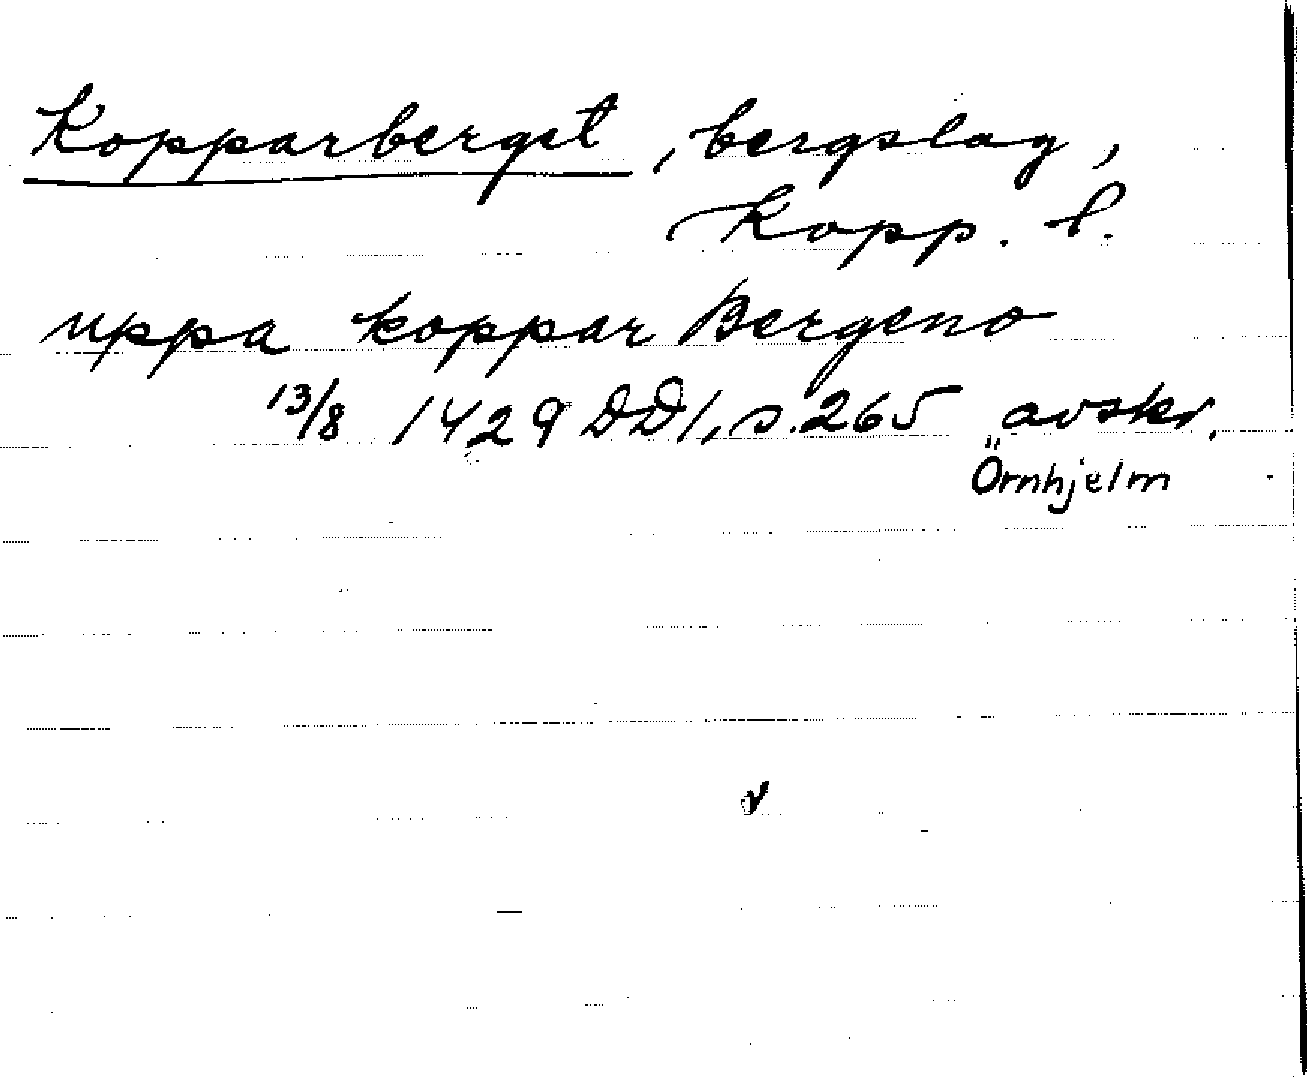 Kopparberget, bergslag,
Kopp. l.
uppa koppar Bergeno
13/8 1429 DD1, s. 265 avskr.
Örnhjelm